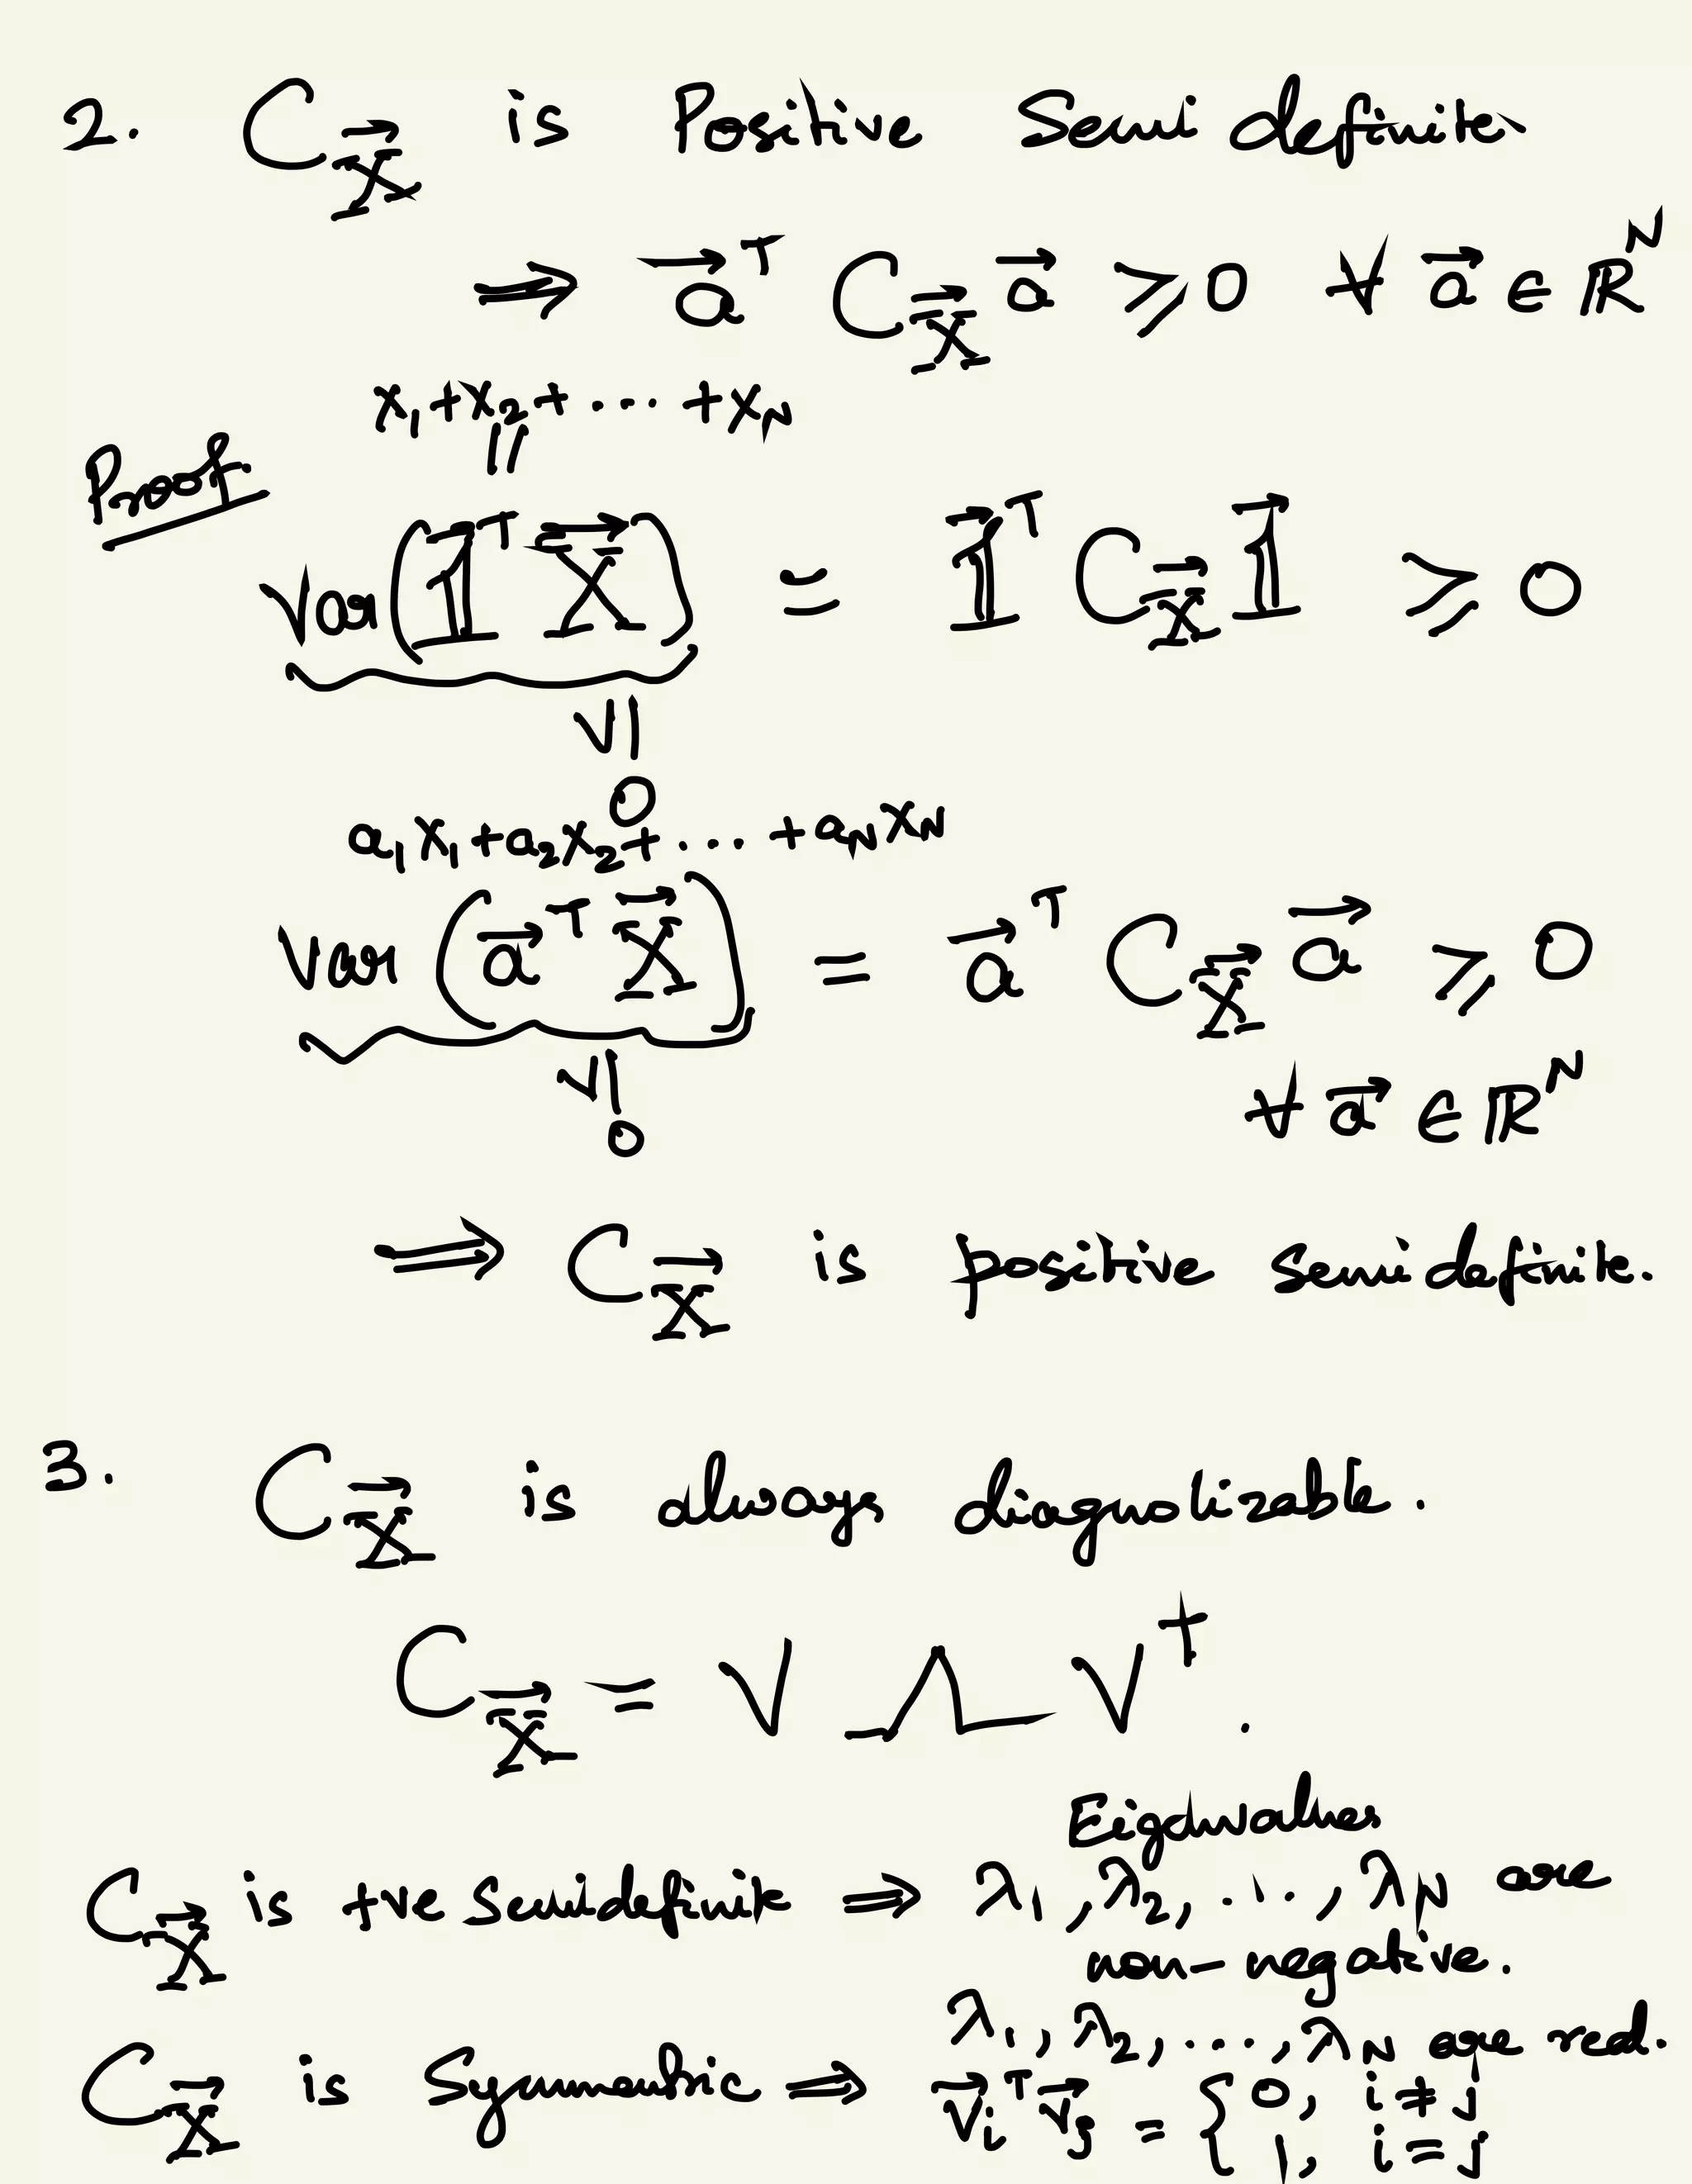 2. C_X⃗ is Positive Semidefinite
⇒ a⃗ᵀ C_X⃗ a⃗ ⩾ 0 ∀ a⃗ ∈ ℝᴺ
X₁+X₂+ ... +X_N
||
Proof
Var(1⃗ᵀ X⃗) = 1⃗ᵀ C_X⃗ 1⃗ ⩾ 0
V|
0
a₁X₁+a₂X₂+ ... +a_N X_N
Var (a⃗ᵀ X⃗) = a⃗ᵀ C_X⃗ a⃗ ⩾ 0
V|
0
∀ a⃗ ∈ ℝᴺ
⇒ C_X⃗ is positive semidefinite.
3. C_X⃗ is always diagnolizable.
C_X⃗ = V Λ V†.
Eigenvalues
C_X⃗ is +ve Semidefinite ⇒ λ₁, λ₂, ..., λ_N are
non-negative.
λ₁, λ₂, ..., λ_N are real.
C_X⃗ is Symmentric ⇒ v⃗ᵢᵀ v⃗ⱼ = { 0, i ≠ j
1, i = j